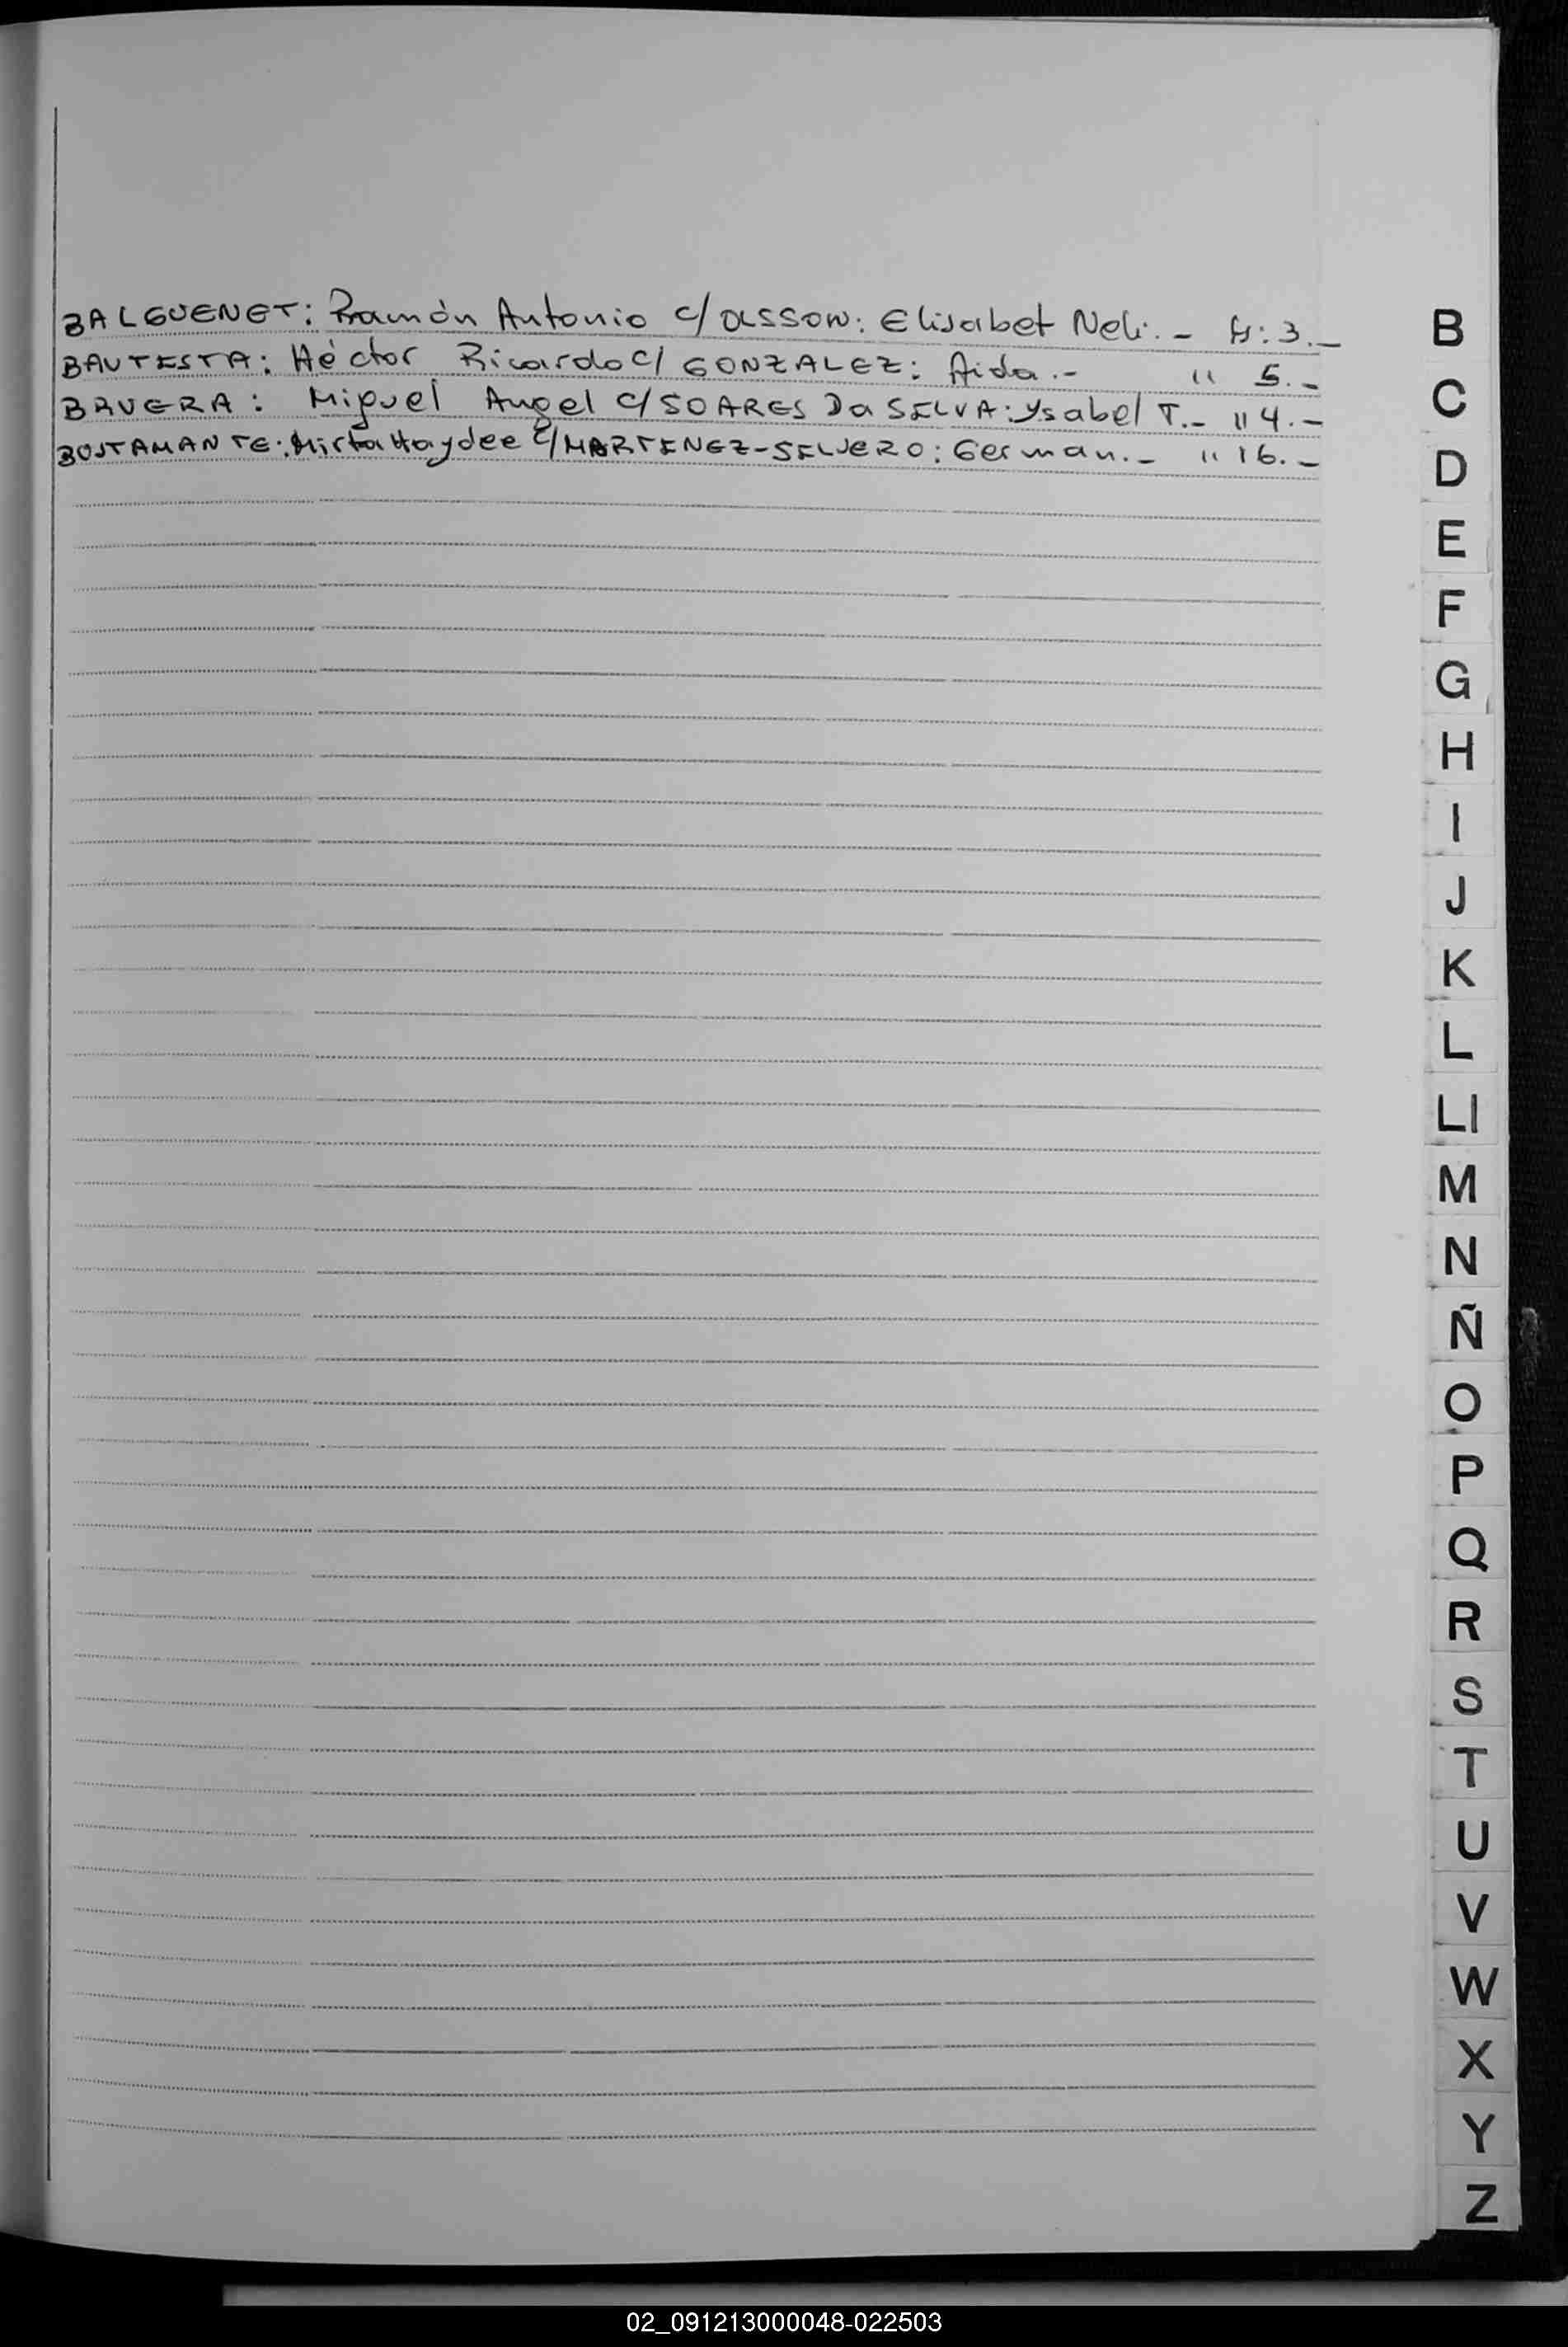 BALGUENET: Ramón Antonio c/ OLSSON: Elisabet Neli.- H: 3.-
BAUTISTA: Héctor Ricardo c/ GONZALEZ: Aida.- " 5.-
BAUERA: Miguel Angel c/ SOARES Da SILVA: Ysabel T.- " 4.-
BUSTAMANTE: Mirta Haydee c/ MARTINEZ-SILVERO: German.- " 16.-
B
C
D
E
F
G
H
I
J
K
L
Ll
M
N
Ñ
O
P
Q
R
S
T
U
V
W
X
Y
Z
02_091213000048-022503